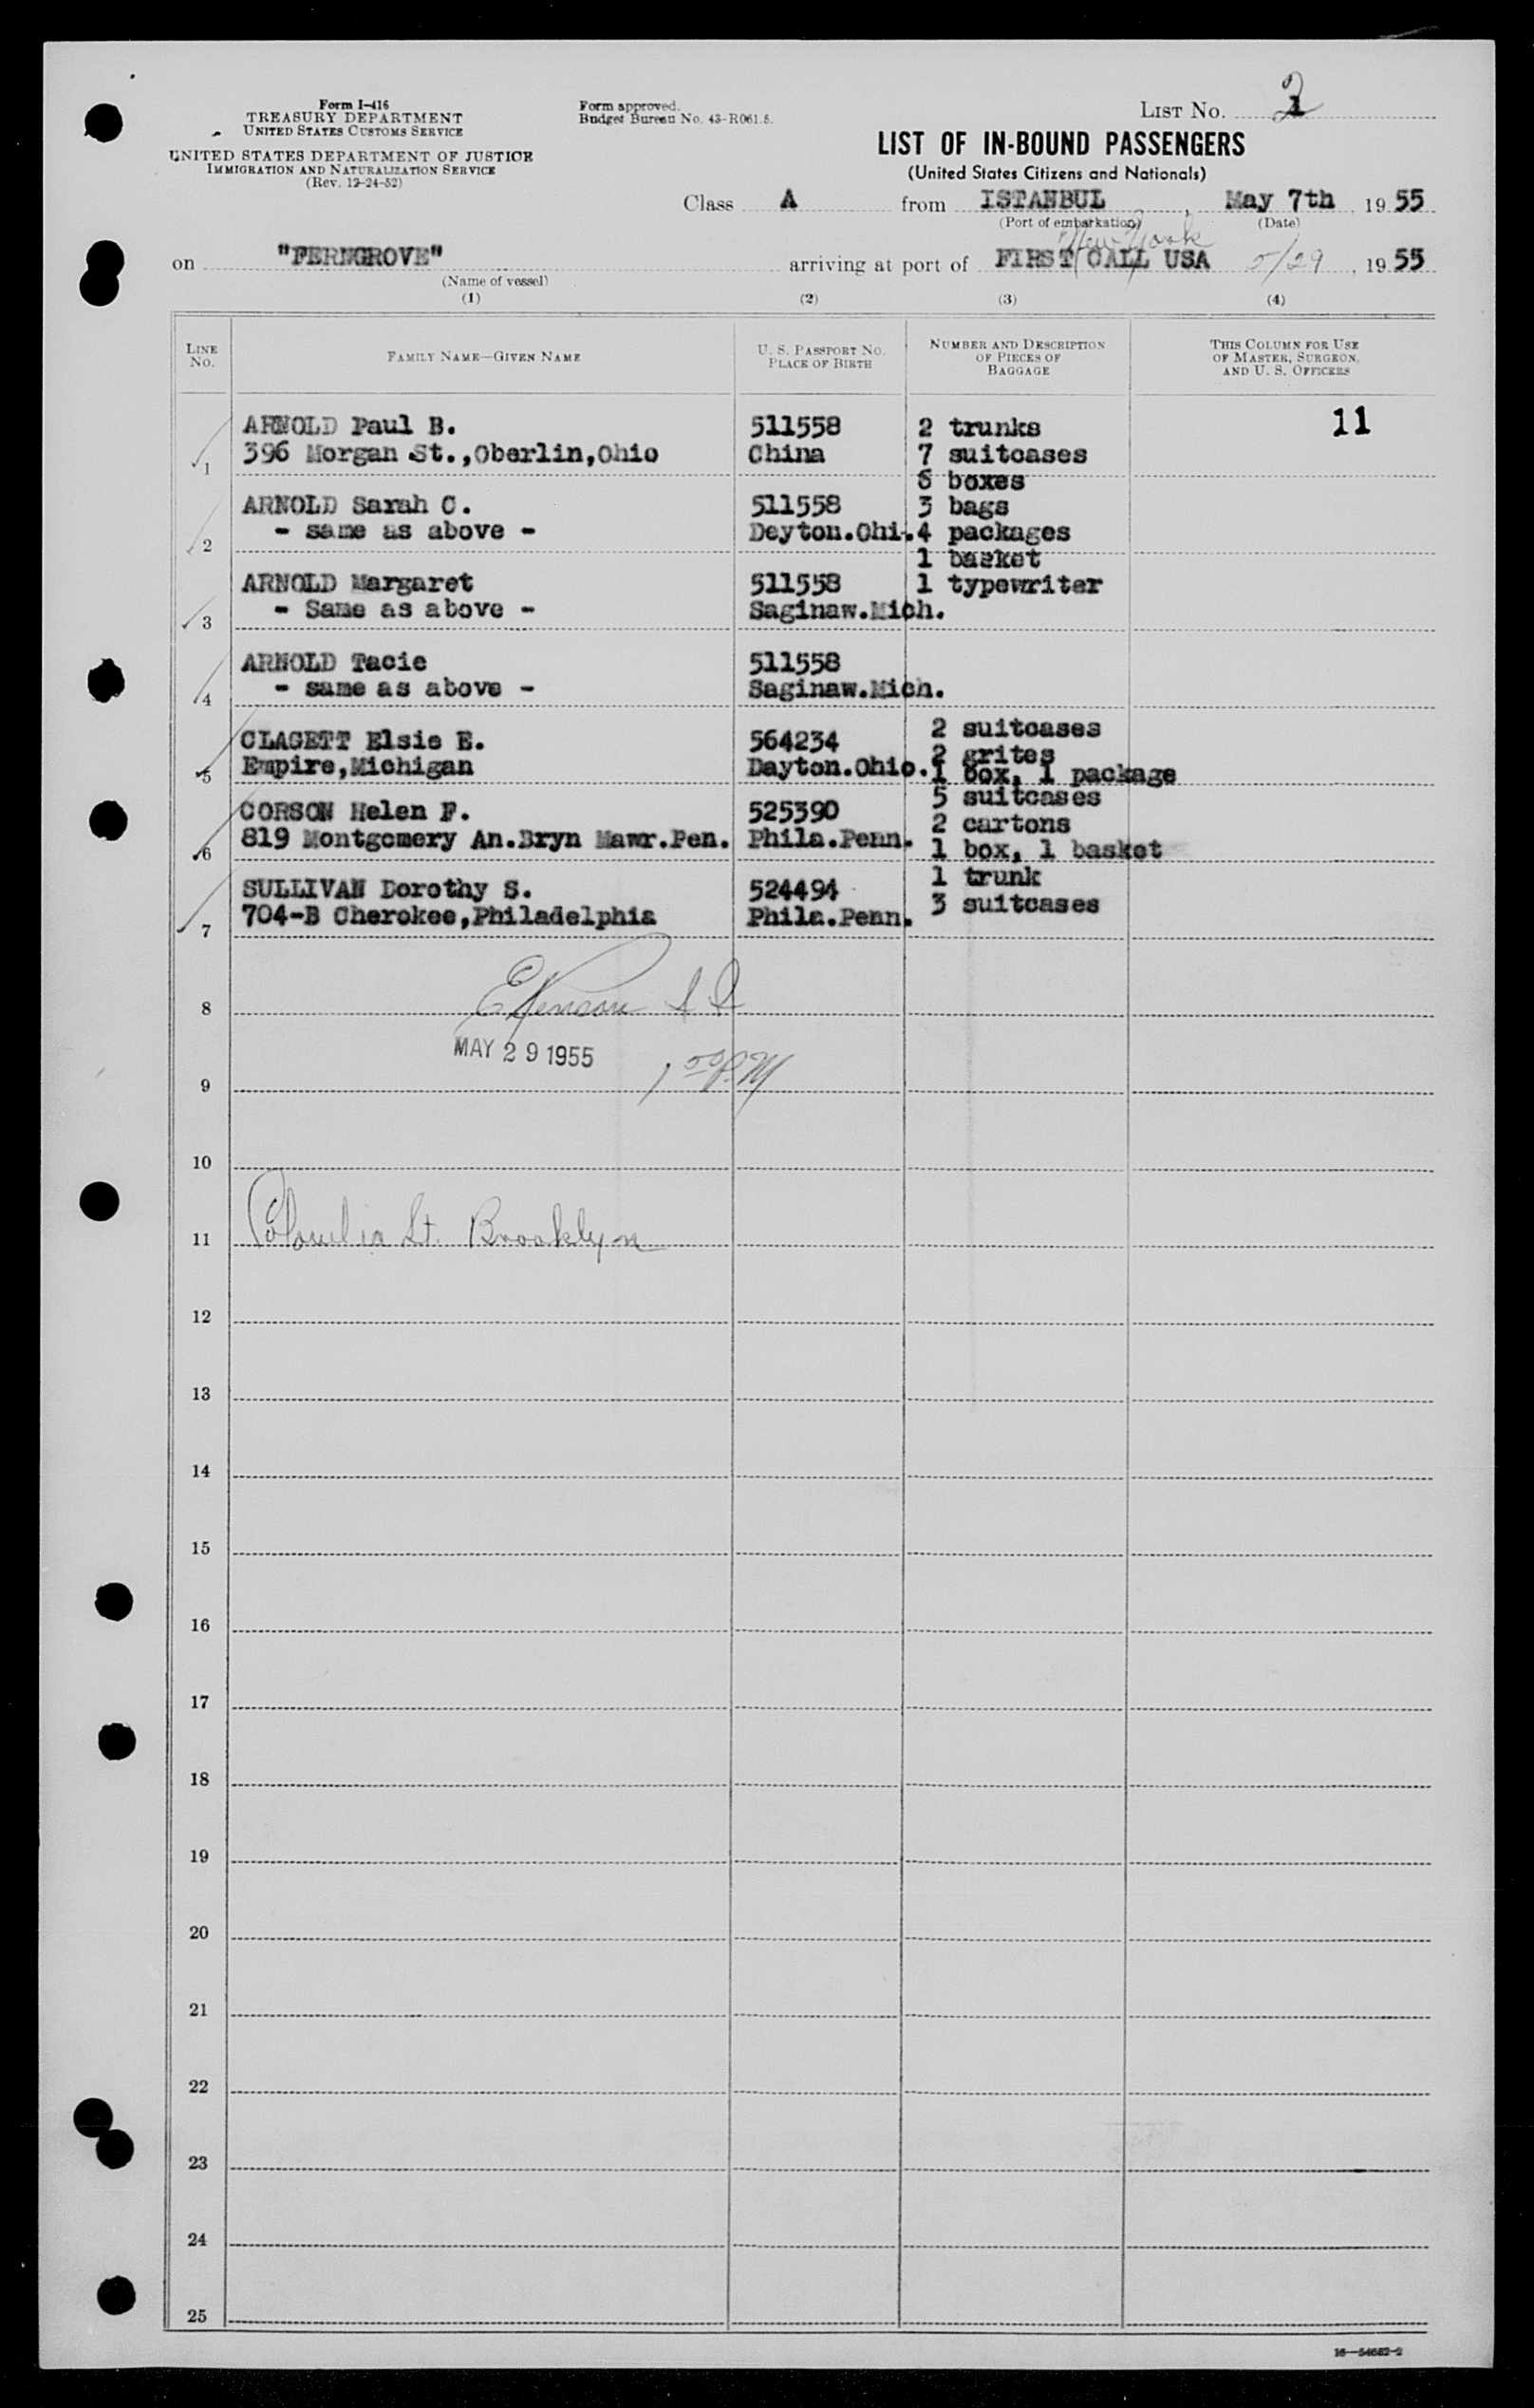 Form I-416
TREASURY DEPARTMENT
UNITED STATES CUSTOMS SERVICE
UNITED STATES DEPARTMENT OF JUSTICE
IMMIGRATION AND NATURALIZATION SERVICE
(Rev. 12-24-52)
Form approved.
Budget Bureau No. 43-R061.5.
LIST No. 2
LIST OF IN-BOUND PASSENGERS
(United States Citizens and Nationals)
Class A from ISTANBUL, May 7th, 1955
(Port of embarkation) (Date)
New York
on "FERNGROVE" arriving at port of FIRST CALL USA 5/29, 1955
(Name of vessel)
(1) (2) (3) (4)
LINE No. FAMILY NAME—GIVEN NAME U. S. PASSPORT No. PLACE OF BIRTH NUMBER AND DESCRIPTION OF PIECES OF BAGGAGE THIS COLUMN FOR USE OF MASTER, SURGEON, AND U. S. OFFICERS
ARNOLD Paul B. 511558 2 trunks 11
1 396 Morgan St.,Oberlin,Ohio China 7 suitcases
6 boxes
ARNOLD Sarah C. 511558 3 bags
2 - same as above - Deyton.Ohi. 4 packages
1 basket
ARNOLD Margaret 511558 1 typewriter
3 - Same as above - Saginaw.Mich.
ARNOLD Tacie 511558
4 - same as above - Saginaw.Mich.
2 suitcases
CLAGETT Elsie E. 564234 2 grites
5 Empire,Michigan Dayton.Ohio. 1 box, 1 package
5 suitcases
CORSON Helen F. 525390 2 cartons
6 819 Montgomery An.Bryn Mawr.Pen. Phila.Penn. 1 box, 1 basket
1 trunk
SULLIVAN Dorothy S. 524494 3 suitcases
7 704-B Cherokee,Philadelphia Phila.Penn.
8
MAY 29 1955
9 1 50 PM
10
11 Columbia St. Brooklyn
12
13
14
15
16
17
18
19
20
21
22
23
24
25
16—54682-2